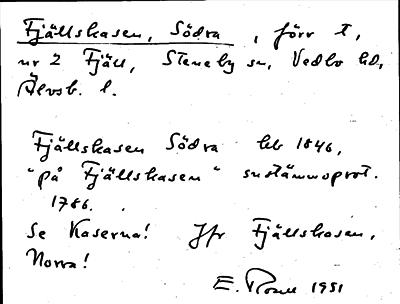 Fjällskasen, Södra, förr t,
nr 2 Fjäll, Steneby sn, Vedbo hd,
Älvsb. l.
Fjällskasen Södra hb 1846,
"på Fjällskasen" sustämmoprot.
1786.
Se Kaserna! Jfr Fjällskasen,
Norra!
E. 1951